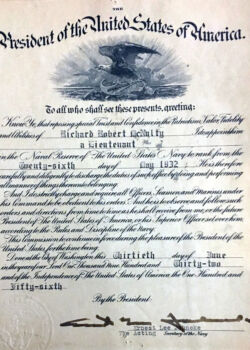 THE
President of the United States of America.
To all who shall see these presents, greeting:
Know Ye, that reposing special Trust and Confidence in the Patriotism, Valor, Fidelity
and Abilities of Richard Robert McNulty I do appoint him
a Lieutenant
in the Naval Reserve of The United States Navy to rank from the
Twenty-sixth day of May 1932 He is therefore
carefully and diligently to discharge the duties of such office by doing and performing
all manner of things thereunto belonging.
And I do strictly charge and require all Officers, Seamen and Marines under
his Command to be obedient to his orders. And he is to observe and follow such
orders and directions, from time to time as he shall receive from me, or the future
President of The United States of America, or his Superior Officer set over him
according to the Rules and Discipline of the Navy.
This Commission to continue in force during the pleasure of the President of the
United States for the time being.
Done at the City of Washington this Thirtieth day of June
in the year of our Lord One Thousand Nine Hundred and Thirty-two
and of the Independence of The United States of America the One Hundred and
Fifty-sixth
By the President:
Ernest Lee Jahncke
The Acting Secretary of the Navy